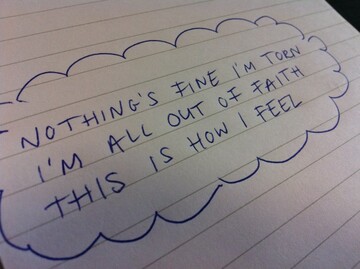 NOTHING'S FINE I'M TORN
I'M ALL OUT OF FAITH
THIS IS HOW I FEEL